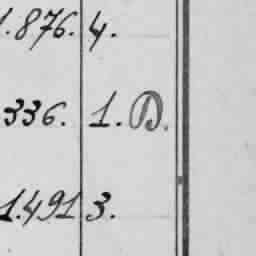 1.876. 4.
336. 1. D.
1.491 3.